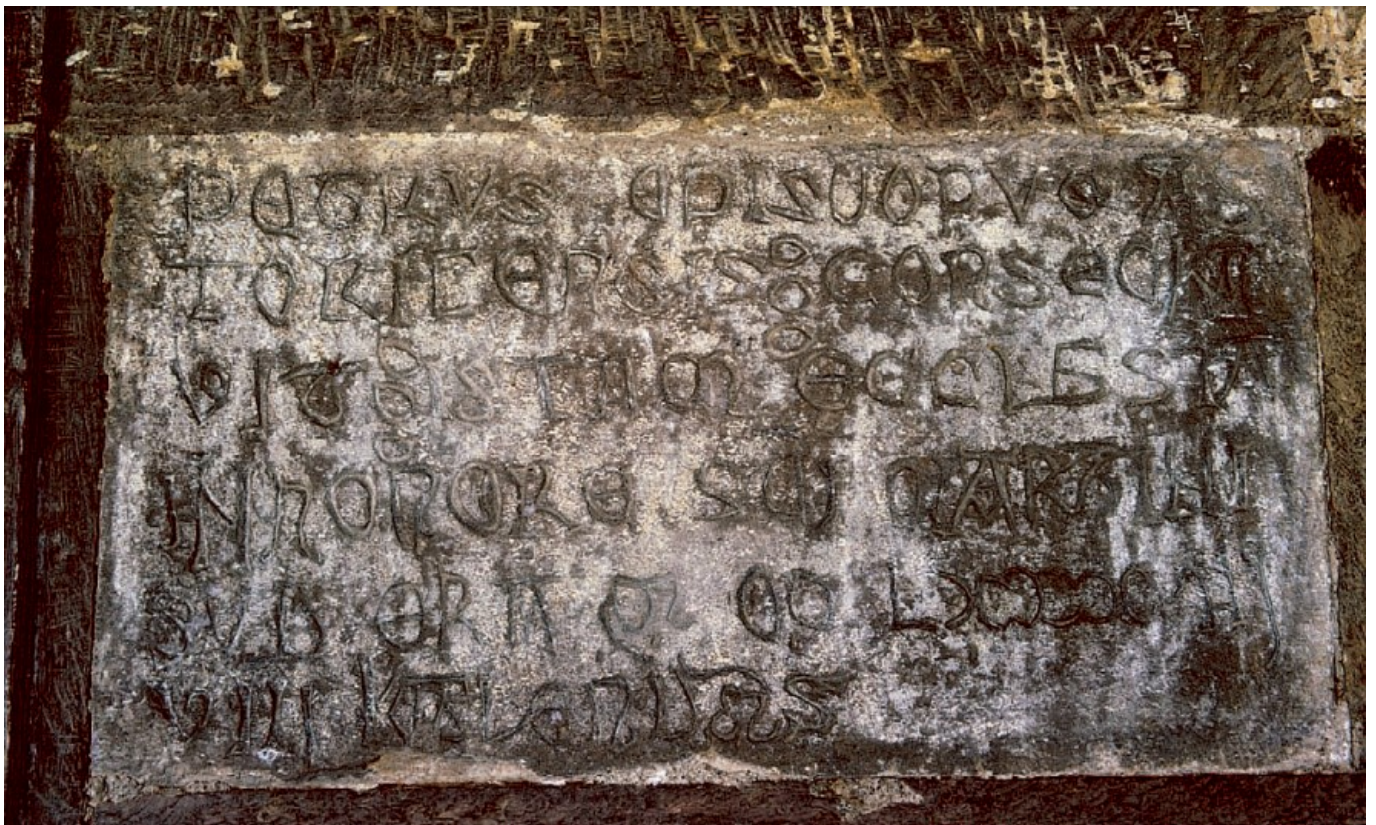 PETRVS EPISCOPVS
TORICENSIS CONSECRA
VIT ISTAM ECCLESIA
IN HONORE SCI MARTINI
SVB ERA
VIIIJ KALENDAS